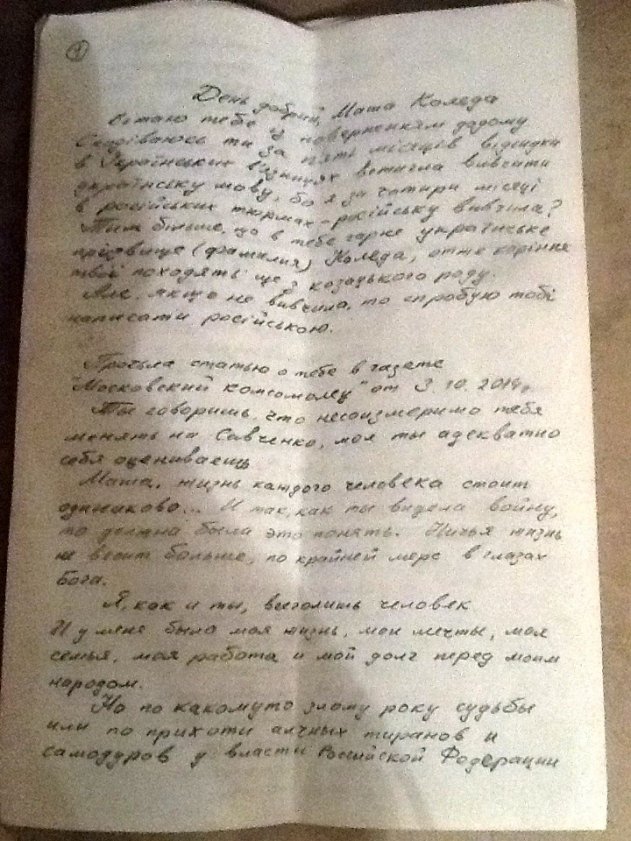 1
День добрий, Маша Коледа
Вітаю тебе із поверненням додому
Сподіваюсь ти за п'ять місяців відсидки
в Українських в'язницях встигла вивчити
українську мову, бо я за чотири місяці
в російських тюрмах - російську вивчила?
Тим більше, що в тебе гарне українське
прізвище (фамилия) Коледа, отже коріння
твої походять ще з козацького роду.
Але, якщо не вивчила, то спробую тобі
написати російською.
Прочла статью о тебе в газете
"Московский комсомолец" от 3.10.2014г.
Ты говоришь, что несоизмеримо тебя
менять на Савченко, мол ты адекватно
себя оцениваешь
Маша, жизнь каждого человека стоит
одинаково... И так, как ты видела войну,
то должна была это понять. Ничья жизнь
не весит больше, по крайней мере в глазах
Бога.
Я, как и ты, всеголишь человек
И у мене была моя жизнь, мои мечты, моя
семья, моя работа и мой долг перед моим
народом.
Но по какомуто злому року судьбы
или по прихоти алчных тиранов и
самодуров у власти Российской Федерации